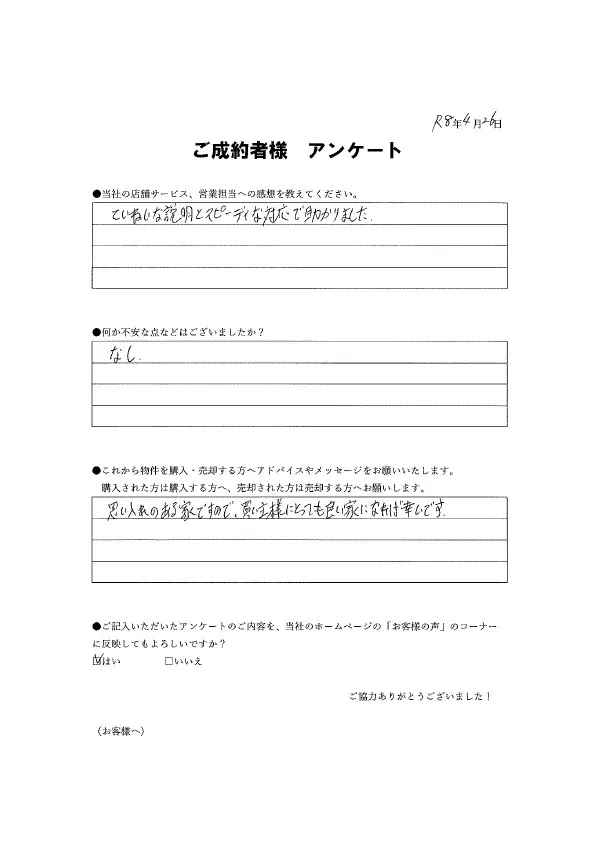 R8年4月26日
ご成約者様 アンケート
●当社の店舗サービス、営業担当への感想を教えてください。
ていねいな説明とスピーディな対応で助かりました.
●何か不安な点などはございましたか？
なし.
●これから物件を購入・売却する方へアドバイスやメッセージをお願いいたします。
購入された方は購入する方へ、売却された方は売却する方へお願いします。
思い入れのある家ですので、買い主様にとっても良い家になれば幸いです.
●ご記入いただいたアンケートのご内容を、当社のホームページの「お客様の声」のコーナー
に反映してもよろしいですか？
☑はい □いいえ
ご協力ありがとうございました！
（お客様へ）